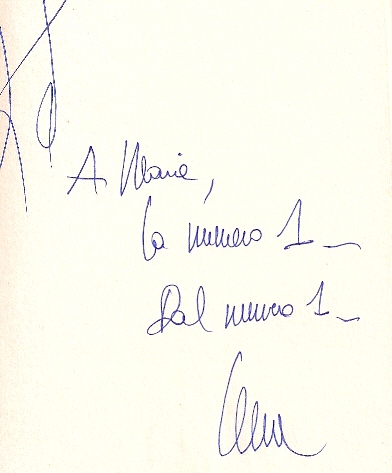 A Maria,
la numero 1_
Dal numero 1_